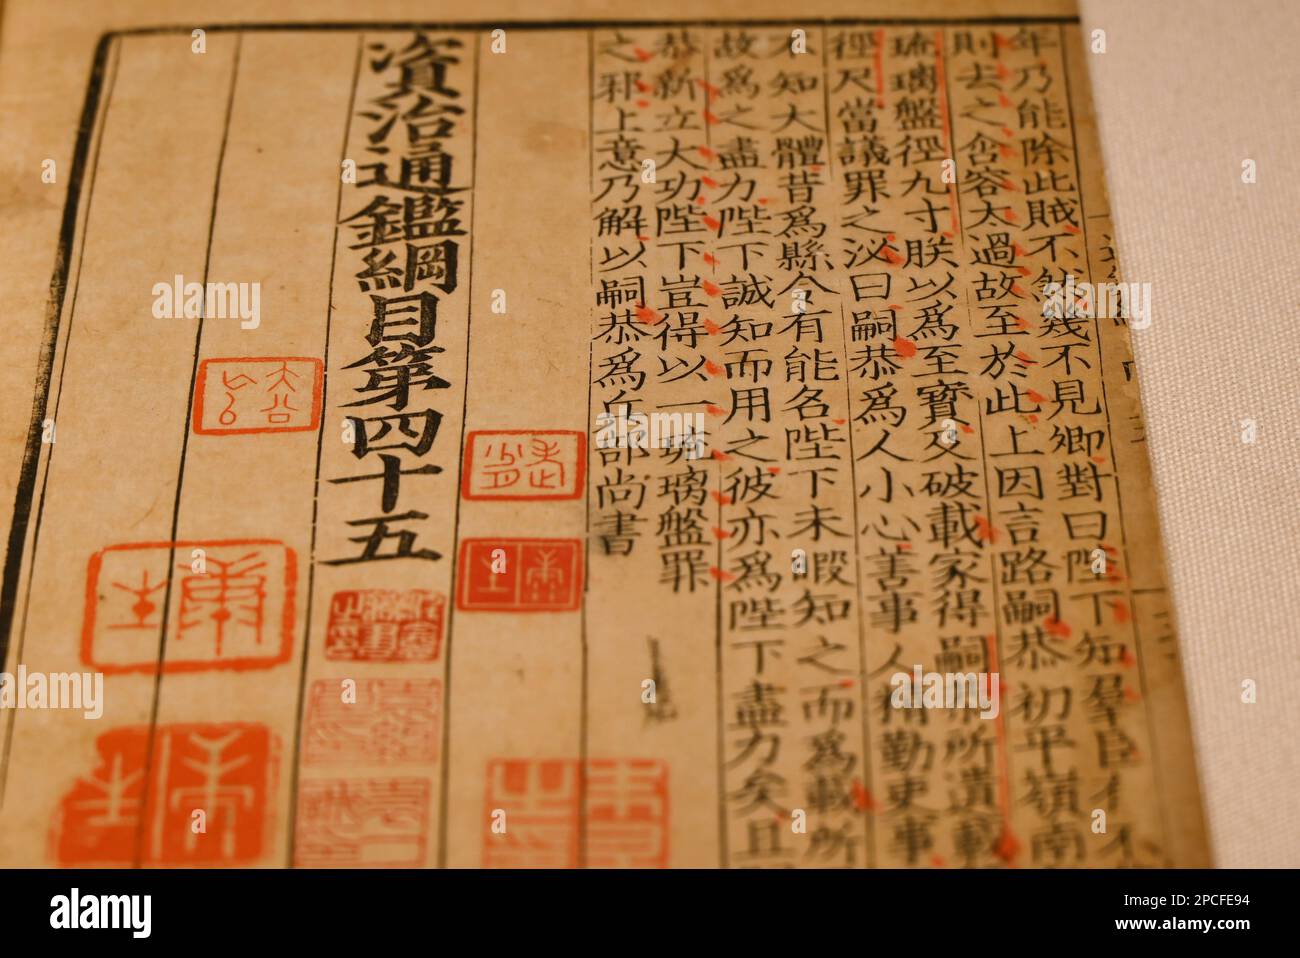 年乃能除此賊不然幾不見卿對曰陛下知羣臣有不
則去之含容太過故至於此上因言路嗣恭初平嶺南
琉璃盤徑九寸朕以為至寶及破載家得嗣恭所遺載
徑尺當議罪之泌曰嗣恭為人小心善事人精勤吏事
不知大體昔為縣令有能名陛下未暇知之而為載所
故為之盡力陛下誠知而用之彼亦為陛下盡力矣且
恭新立大功陛下豈得以一琉璃盤罪
之邪上意乃解以嗣恭為兵部尚書
資治通鑑綱目第四十五
alamy
Image ID: 2PCFE94
www.alamy.com